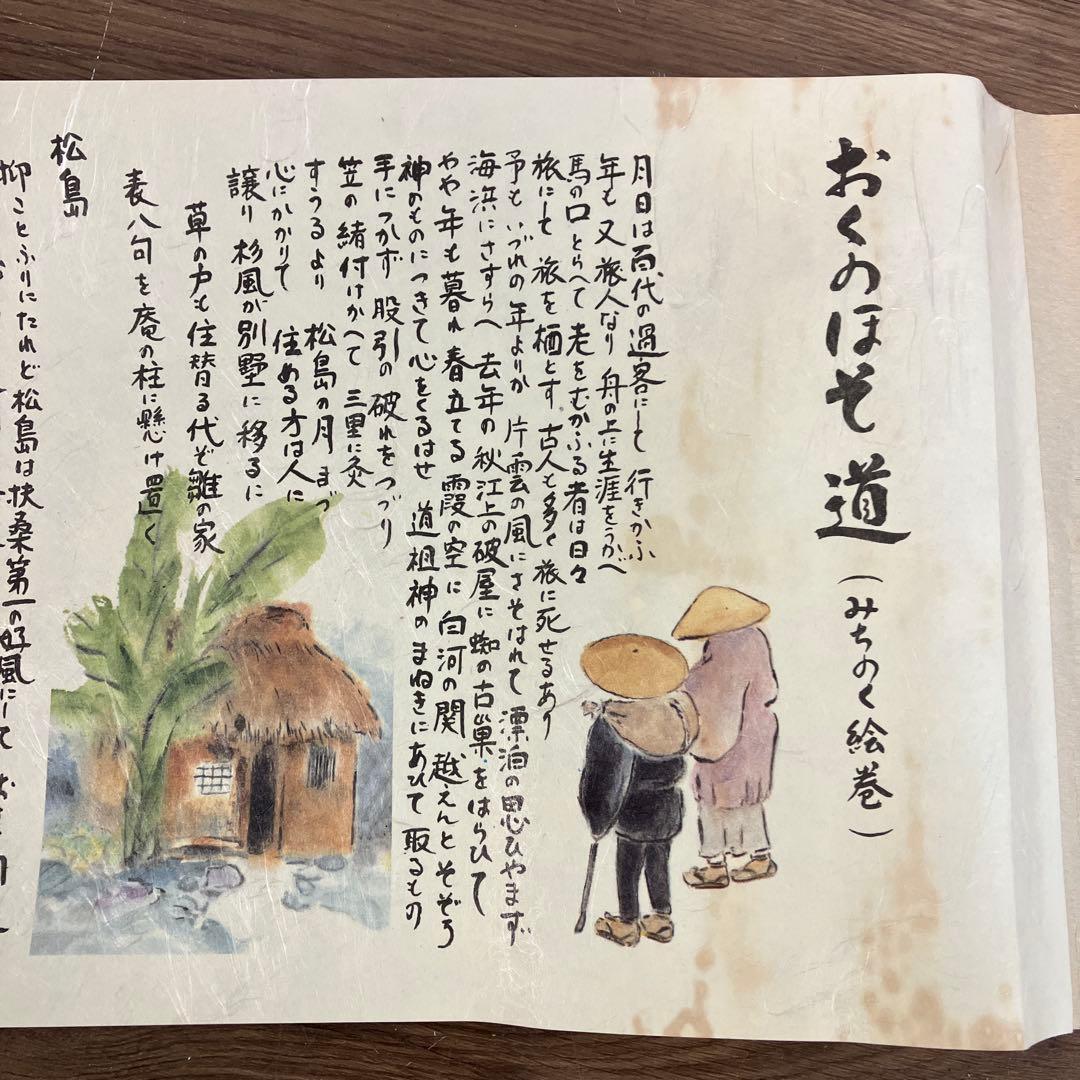 おくのほそ道
(みちのく絵巻)
月日は百代の過客にして 行きかふ
年も又 旅人なり 舟の上に生涯をうかべ
馬の口とらへて 老をむかふる者は日々
旅にして 旅を栖とす。古人も多く 旅に死せるあり
予も いづれの年よりか 片雲の風にさそはれて 漂泊の思ひやまず
海浜にさすらへ 去年の秋江上の破屋に 蜘の古巣をはらひて
やや年も暮れ 春立てる霞の空に 白河の関越えんと そぞろ
神のものにつきて心をくるはせ 道祖神のまねきにあひて 取るもの
手につかず 股引の破れをつづり
笠の緒付けかへて 三里に灸
すうるより 松島の月まづ
心にかかりて 住める方は人に
譲り 杉風が別墅に移るに
草の戸も 住替る代ぞ 雛の家
表八句を庵の柱に懸け置く
松島
抑ことふりにたれど 松島は扶桑第一の好風にして